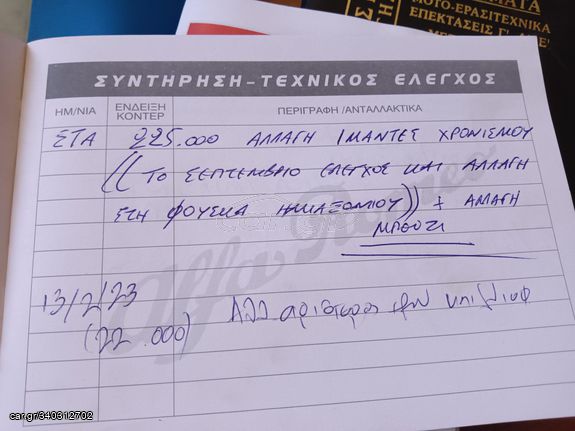 ΜΑΤΑ
ΜΟΤΟ-ΕΡΑΣΙΤΕΧΝΙΚΑ
ΕΠΕΚΤΑΣΕΙΣ Γ'
ΣΥΝΤΗΡΗΣΗ-ΤΕΧΝΙΚΟΣ ΕΛΕΓΧΟΣ
ΗΜ/ΝΙΑ ΕΝΔΕΙΞΗ ΚΟΝΤΕΡ ΠΕΡΙΓΡΑΦΗ/ΑΝΤΑΛΛΑΚΤΙΚΑ
ΣΤΑ 225.000 ΑΛΛΑΓΗ ΙΜΑΝΤΕΣ ΧΡΟΝΙΣΜΟΥ
((ΤΟ ΣΕΠΤΕΜΒΡΙΟ ΕΛΕΓΧΟΣ ΚΑΙ ΑΛΛΑΓΗ
ΣΤΗ ΦΟΥΣΚΑ ΗΜΙΑΞΟΝΙΟΥ)) + ΑΛΛΑΓΗ
ΜΠΕΟΖΙ
Alfa Romeo
13/2/23
(22 .000)
car.gr/340312702